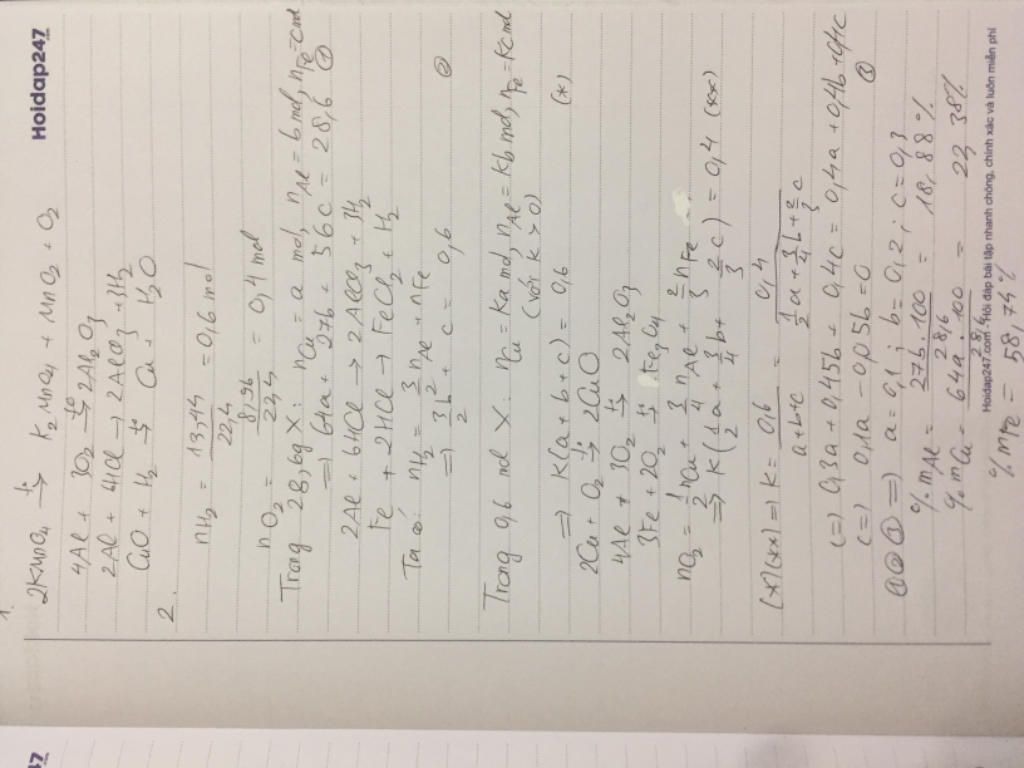 Hoidap247
1.
2KMnO4 →t° K2MnO4 + MnO2 + O2
4Al + 3O2 →t° 2Al2O3
2Al + 6HCl → 2AlCl3 + 3H2
CuO + H2 →t° Cu + H2O
2.
nH2 = 13,44/22,4 = 0,6 mol
nO2 = 8,96/22,4 = 0,4 mol
Trong 28,6g X: nCu = a mol, nAl = b mol, nFe = c mol
=> 64a + 27b + 56c = 28,6 ①
2Al + 6HCl → 2AlCl3 + 3H2
Fe + 2HCl → FeCl2 + H2
Ta có: nH2 = 3/2 nAl + nFe
=> 3b/2 + c = 0,6 ②
Trong 0,6 mol X: nCu = Ka mol, nAl = Kb mol, nFe = Kc mol
(với k > 0)
=> K(a + b + c) = 0,6 (*)
2Cu + O2 →t° 2CuO
4Al + 3O2 →t° 2Al2O3
3Fe + 2O2 →t° Fe3O4
nO2 = 1/2 nCu + 3/4 nAl + 2/3 nFe
=> K(1/2 a + 3/4 b + 2/3 c) = 0,4 (**)
(*)(**) => K = 0,6/(a+b+c) = 0,4/(1/2 a + 3/4 b + 2/3 c)
(=) 0,3a + 0,45b + 0,4c = 0,4a + 0,4b + 0,4c
(=) 0,1a - 0,05b = 0 ③
①②③ => a = 0,1; b = 0,2; c = 0,3
% mAl = 27b.100/28,6 = 18,88 %
% mCu = 64a.100/28,6 = 22,38%
Hoidap247.com - Hỏi đáp bài tập nhanh chóng, chính xác và luôn miễn phí
% mFe = 58,74%
47